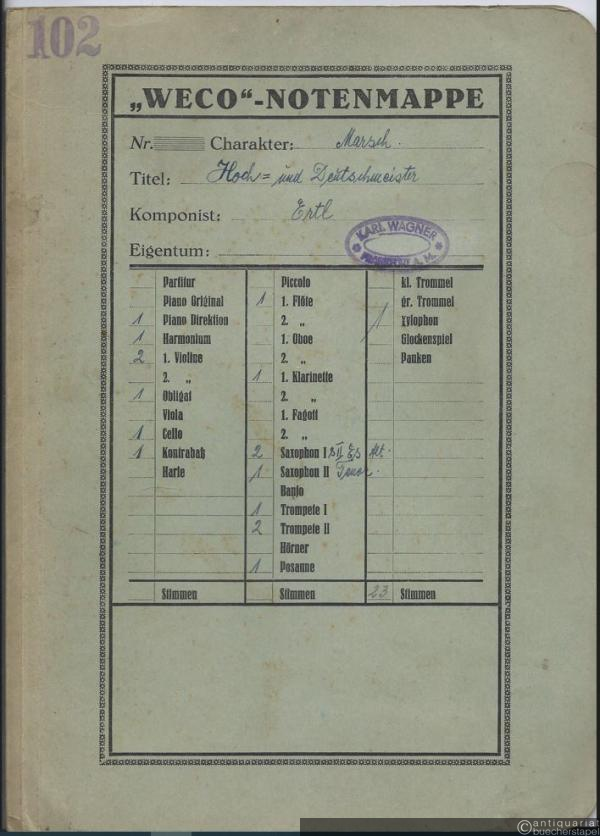 102
„WECO“-NOTENMAPPE
Nr. Charakter: Marsch.
Titel: Hoch= und Deutschmeister
Komponist: Ertl
Eigentum:
KARL WAGNER
FRANKFURT A. M.
Partitur
Piano Original
1 Piano Direktion
1 Harmonium
2 1. Violine
2. „
1 Obligat
Viola
1 Cello
1 Kontrabaß
Harfe
Stimmen
Piccolo
1 1. Flöte
2. „
1. Oboe
2. „
1 1. Klarinette
2. „
1. Fagott
2. „
2 Saxophon I Es Alt.
1 Saxophon II Tenor.
Banjo
1 Trompete I
2 Trompete II
Hörner
1 Posaune
Stimmen
kl. Trommel
gr. Trommel
1 Xylophon
Glockenspiel
Pauken
23 Stimmen
antiquariat
buecherstapel